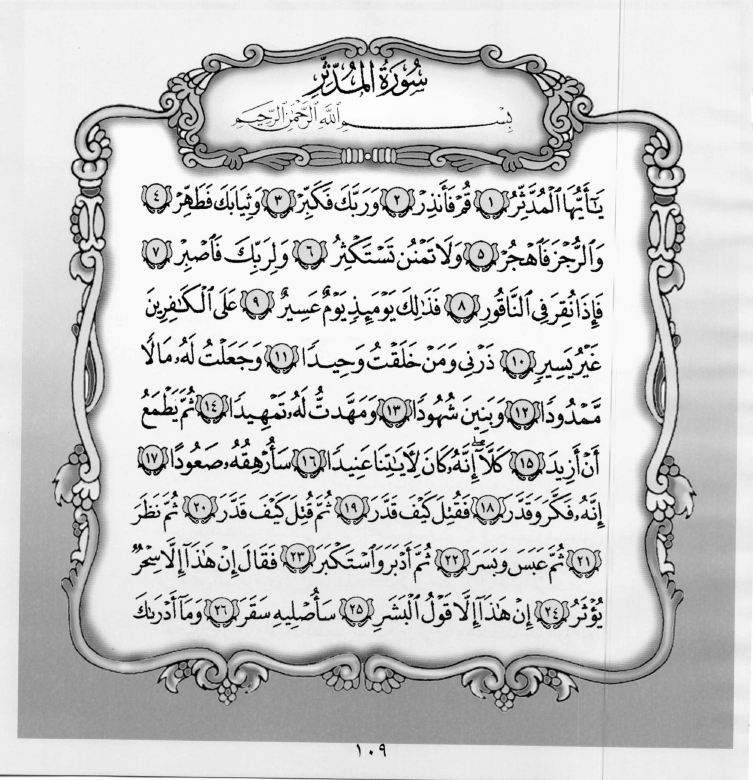 سُورَةُ المُدَّثِّرِ
بِسْمِ ٱللَّهِ ٱلرَّحْمَٰنِ ٱلرَّحِيمِ
يَٰٓأَيُّهَا ٱلْمُدَّثِّرُ ١ قُمْ فَأَنذِرْ ٢ وَرَبَّكَ فَكَبِّرْ ٣ وَثِيَابَكَ فَطَهِّرْ ٤
وَٱلرُّجْزَ فَٱهْجُرْ ٥ وَلَا تَمْنُن تَسْتَكْثِرُ ٦ وَلِرَبِّكَ فَٱصْبِرْ ٧
فَإِذَا نُقِرَ فِى ٱلنَّاقُورِ ٨ فَذَٰلِكَ يَوْمَئِذٍ يَوْمٌ عَسِيرٌ ٩ عَلَى ٱلْكَٰفِرِينَ
غَيْرُ يَسِيرٍ ١٠ ذَرْنِى وَمَنْ خَلَقْتُ وَحِيدًا ١١ وَجَعَلْتُ لَهُۥ مَالًا
مَّمْدُودًا ١٢ وَبَنِينَ شُهُودًا ١٣ وَمَهَّدتُّ لَهُۥ تَمْهِيدًا ١٤ ثُمَّ يَطْمَعُ
أَنْ أَزِيدَ ١٥ كَلَّآ ۖ إِنَّهُۥ كَانَ لِءَايَٰتِنَا عَنِيدًا ١٦ سَأُرْهِقُهُۥ صَعُودًا ١٧
إِنَّهُۥ فَكَّرَ وَقَدَّرَ ١٨ فَقُتِلَ كَيْفَ قَدَّرَ ١٩ ثُمَّ قُتِلَ كَيْفَ قَدَّرَ ٢٠ ثُمَّ نَظَرَ
٢١ ثُمَّ عَبَسَ وَبَسَرَ ٢٢ ثُمَّ أَدْبَرَ وَٱسْتَكْبَرَ ٢٣ فَقَالَ إِنْ هَٰذَآ إِلَّا سِحْرٌ
يُؤْثَرُ ٢٤ إِنْ هَٰذَآ إِلَّا قَوْلُ ٱلْبَشَرِ ٢٥ سَأُصْلِيهِ سَقَرَ ٢٦ وَمَآ أَدْرَىٰكَ
١٠٩